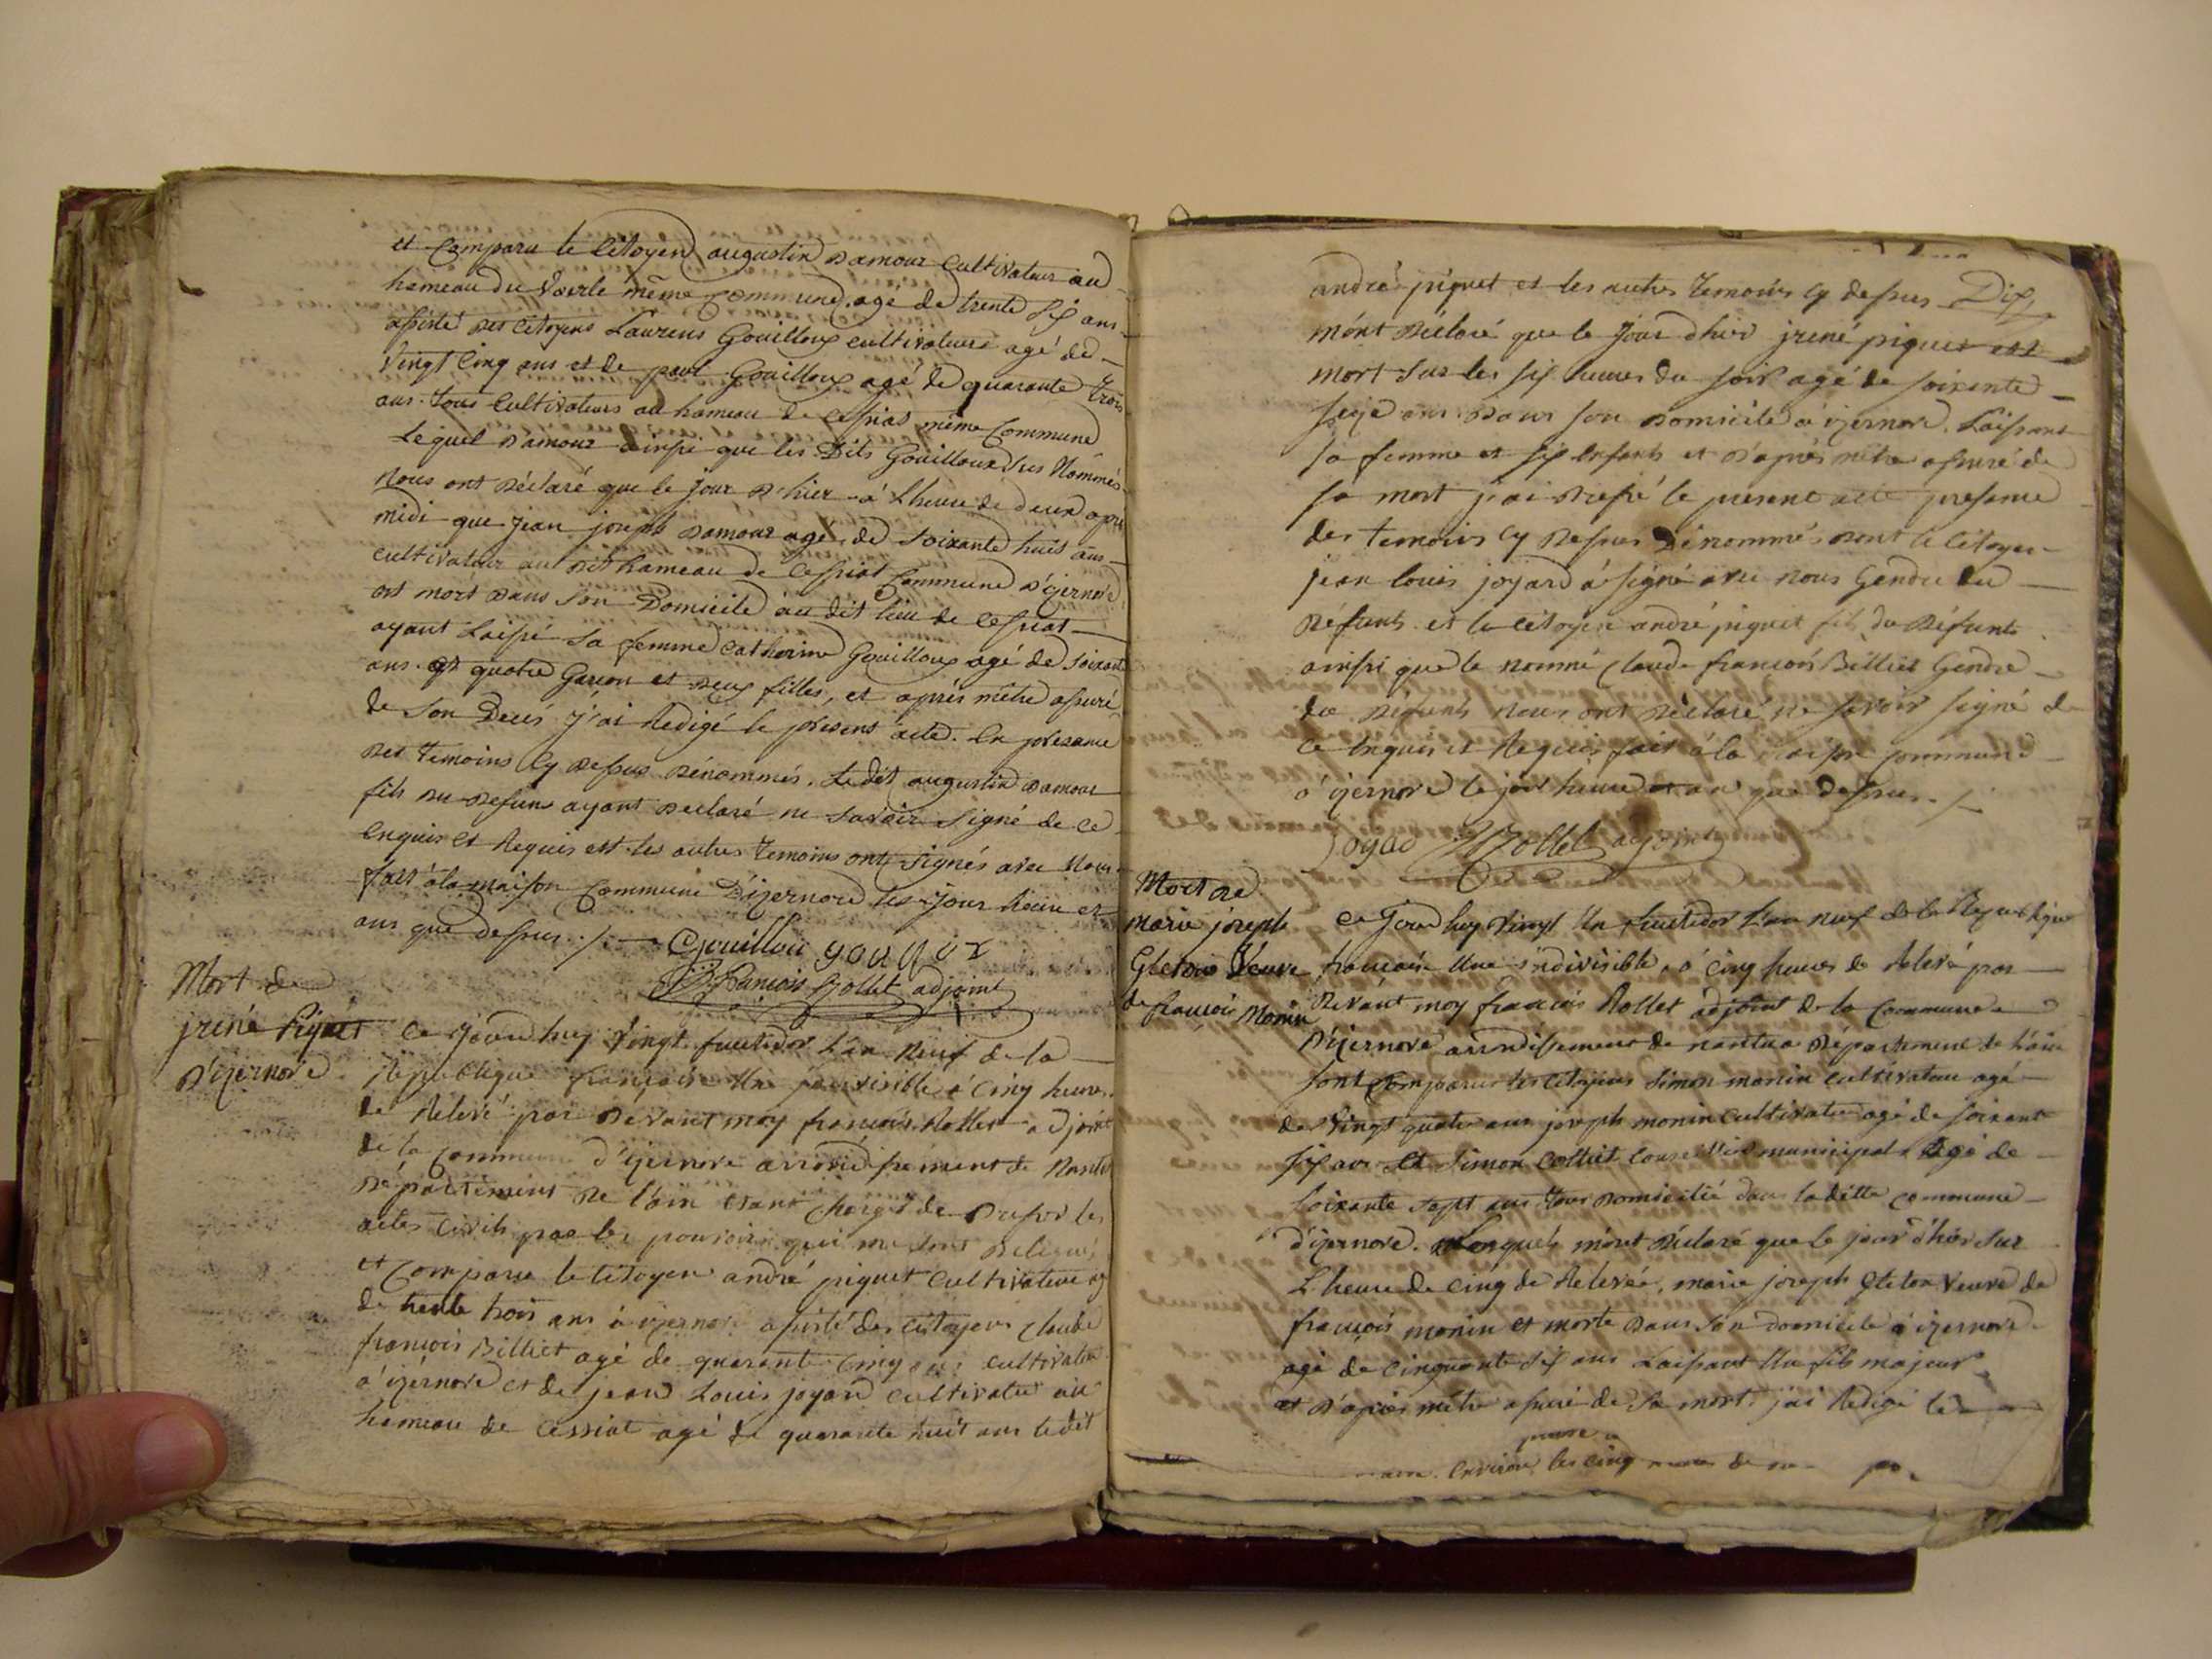 et Comparu le Citoyen augustin Damour Cultivateur au
hameau du Voerle même Commune, agé de trente six ans
assisté des Citoyens Laurens Gouilloux cultivateur agé de
Vingt Cinq ans et de paul Gouilloux agé de quarante trois
ans. Tous Cultivateurs au hameau de Cessiat même Commune
Lequel Damour ainssi que les Dits Gouilloux sus Nommés
Nous ont déclaré que le jour D'hier à L'heure de deux après
midi que jean joseph Damour agé de soixante huit ans
Cultivateur au dit hameau de Cessiat Commune D'izernore
est mort dans son Domicile au dit lieu de Cessiat
ayant Laissé sa femme Catherine Gouilloux agé de soixante
ans. quatre Garçon et deux filles, et après mêtre assuré
de son Decés j'ai Redigé le présent acte. En présance
des Temoins Cy dessus dénommés. Le dit augustin Damour
fils du defunt ayant declaré ne savoir signé de ce
Enquis et Requis et les autres Temoins ont signés avec Nous
fait à la maison Commune D'izernore les jour heure et
ans que dessus ./.
Gouilloux
françois Rollet adjoint
Mort de
jrené Piquet
D'izernore
Ce jourd'huy Vingt fructidor L'an Neuf de la
République françoise Une jndivisible à Cinq heures
de Relevé par Dévant moy françois Rollet adjoint
de la Commune d'izernore arrondissement de Nantua
Département de l'ain étant chargé de dresser les
actes Civils par les pouvoirs qui me sont délégués
et Comparu le Citoyen andré piquet Cultivateur agé
de trente trois ans à izernore assisté des Citoyens Claude
françois Billiet agé de quarante cinq ans cultivateur
à izérnore et de jean Louis joyard cultivateur au
hameau de Cessiat agé de quarante huit ans ledit
andré piquet et les autres Temoins Cy dessus Dis
m'ont Déclaré que le jour d'hier jrené piquet est
mort sur les six heures du soir agé de soixante
seize ans dans son Domicile à izernore. Laissant
sa femme et six Enfants et D'après mêtre assuré de
sa mort j'ai dressé le present acte presence
des temoins Cy dessus Dénommés dont le Citoyen
jean louis joyard à signé avec nous Gendre du
Défunts et le Citoyen andré piquet fils du Défunts
ainssi que le nommé Claude françois Billiet Gendre
du Défunts nous ont Déclaré ne savoir signé de
Ce Enquis et Requis, fait à la maison commune
à izernore le jour heure et an que dessus ./.
Joyard Rollet adjoint
Mort de
Marie joseph
Gleton Veuve
de françois Monin
Ce Jourd'huy Vingt Un fructidor L'an neuf de la République
françoise Une indivisible, à Cinq heures de Relevé par
Dévant moy françois Rollet adjoint de la Commune
D'izernore arrondissement de nantua Département de L'ain
sont Comparus les Citoyens Simon monin Cultivateur agé
de Vingt quatre ans joseph monin Cultivateur agé de soixante
six ans Et Simon Colliet Conseiller municipal Agé de
soixante sept ans Tous Domicilié dans ladite commune
d'izernore. Lesquels m'ont Déclaré que le jour d'hier sur
L'heure de Cinq de Relevée, marie joseph Gleton Veuve de
françois monin et morte dans son domicile à izernore
agé de Cinquante six ans Laissant Un fils majeur
et D'après mêtre assuré de sa mort, j'ai Redigé le
environ les cinq